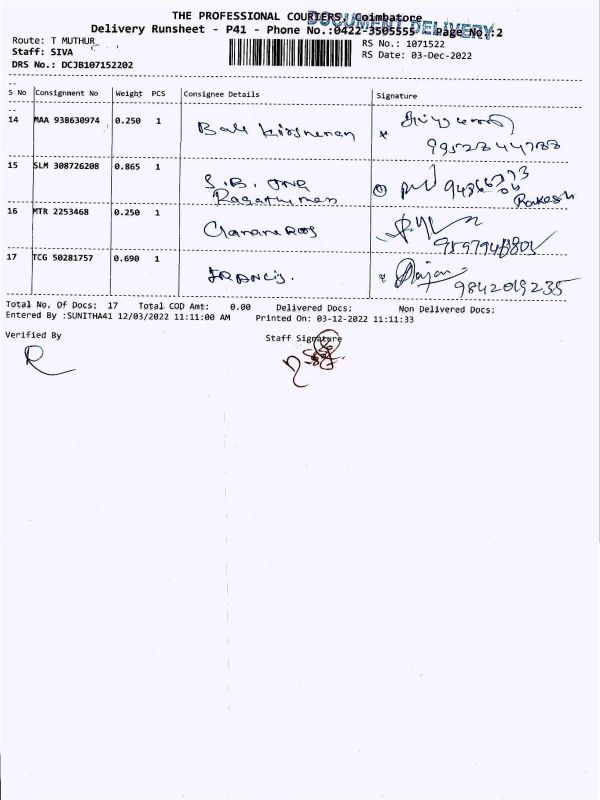 THE PROFESSIONAL COURIERS, Coimbatore
DOCUMENT DELIVERY
Delivery Runsheet - P41 - Phone No.:0422-3505555 Page No :2
Route: T MUTHUR
RS No.: 1071522
Staff: SIVA
RS Date: 03-Dec-2022
DRS No.: DCJB107152202
S No Consignment No Weight PCS Consignee Details Signature
14 MAA 938630974 0.250 1
15 SLM 308726208 0.865 1 S.B.
Rakesh
16 MTR 2253468 0.250 1
17 TCG 50281757 0.690 1 FRANCIS.
9842019235
Total No. Of Docs: 17 Total COD Amt: 0.00 Delivered Docs: Non Delivered Docs:
Entered By :SUNITHA41 12/03/2022 11:11:00 AM Printed On: 03-12-2022 11:11:33
Verified By Staff Signature